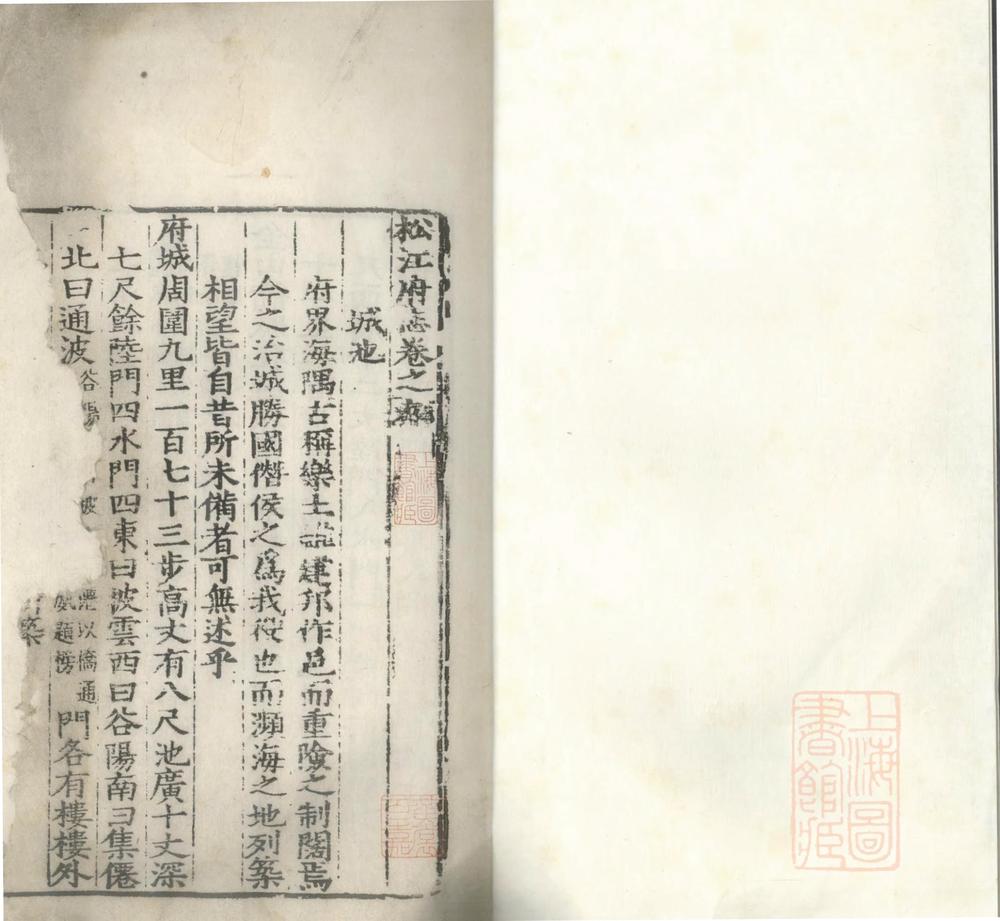 松江府志卷之九
城池
府界海隅古稱樂土說建邦作邑而重險之制闊焉
今之治城勝國僭侯之爲我役也而瀕海之地列築
相望皆自昔所未備者可無述乎
府城周圍九里一百七十三步高丈有八尺池廣十丈深
七尺餘陸門四水門四東曰披雲西曰谷陽南曰集僊
北曰通波
谷陽
波
以僑通
題榜
門各有樓樓外
築
上海圖
書館藏
上海圖
書館藏